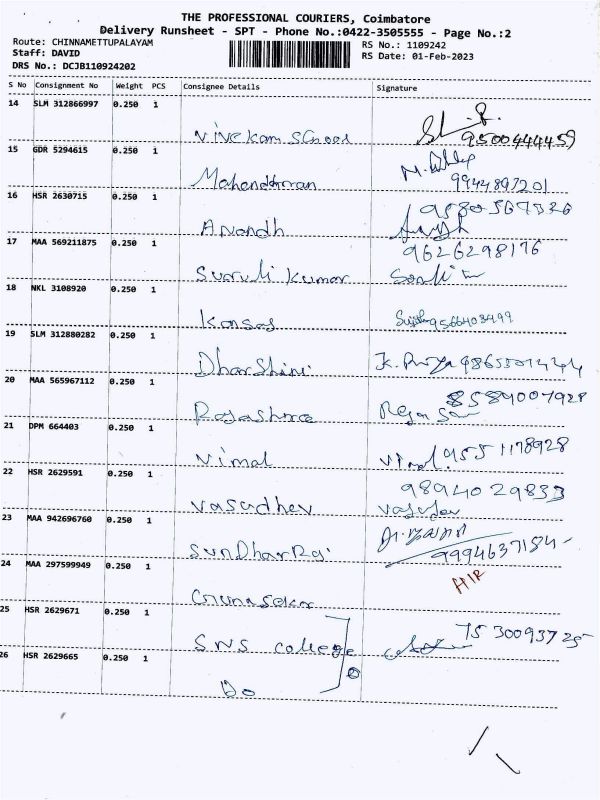 THE PROFESSIONAL COURIERS, Coimbatore
Delivery Runsheet - SPT - Phone No.:0422-3505555 - Page No.:2
Route: CHINNAMETTUPALAYAM
RS No.: 1109242
Staff: DAVID
RS Date: 01-Feb-2023
DRS No.: DCJB110924202
S No Consignment No Weight PCS Consignee Details Signature
14 SLM 312866997 0.250 1
Vivekam School 9500444459
15 GDR 5294615 0.250 1
Mahendran 9944897201
16 HSR 2630715 0.250 1 9580567526
Anandh
17 MAA 569211875 0.250 1 9626298176
Suruli Kumar
18 NKL 3108920 0.250 1
9566403499
19 SLM 312880282 0.250 1
Dharshini K. Priya
20 MAA 565967112 0.250 1 8589007928
21 DPM 664403 0.250 1
Vimal Vimal. 9551178928
22 HSR 2629591 0.250 1 9894029833
Vasudhev
23 MAA 942696760 0.250 1
SunDharRaj
24 MAA 297599949 0.250 1
Gunasekar
25 HSR 2629671 0.250 1
SNS College 7530093725
26 HSR 2629665 0.250 1
Do